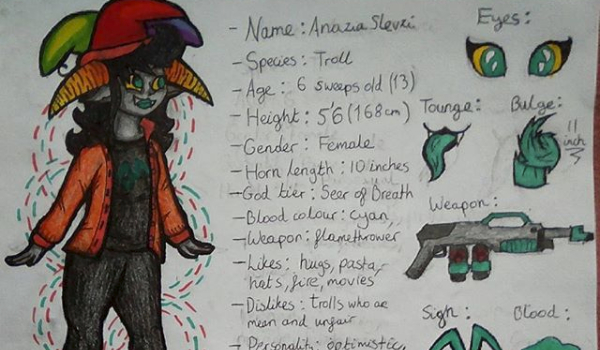 - Name : Anazia Slevzi
- Species : Troll
- Age : 6 sweeps old (13)
- Height : 5'6 (168cm)
- Gender : Female
- Horn length : 10 inches
- God tier : Seer of Breath
- Blood colour : cyan
- Weapon : flamethrower
- Likes : hugs, pasta,
hats, fire, movies
- Dislikes : trolls who are
mean and unfair
- Personality : optimistic,
Eyes :
Tounge :
Bulge :
11
inch
Weapon :
Sign :
Blood :